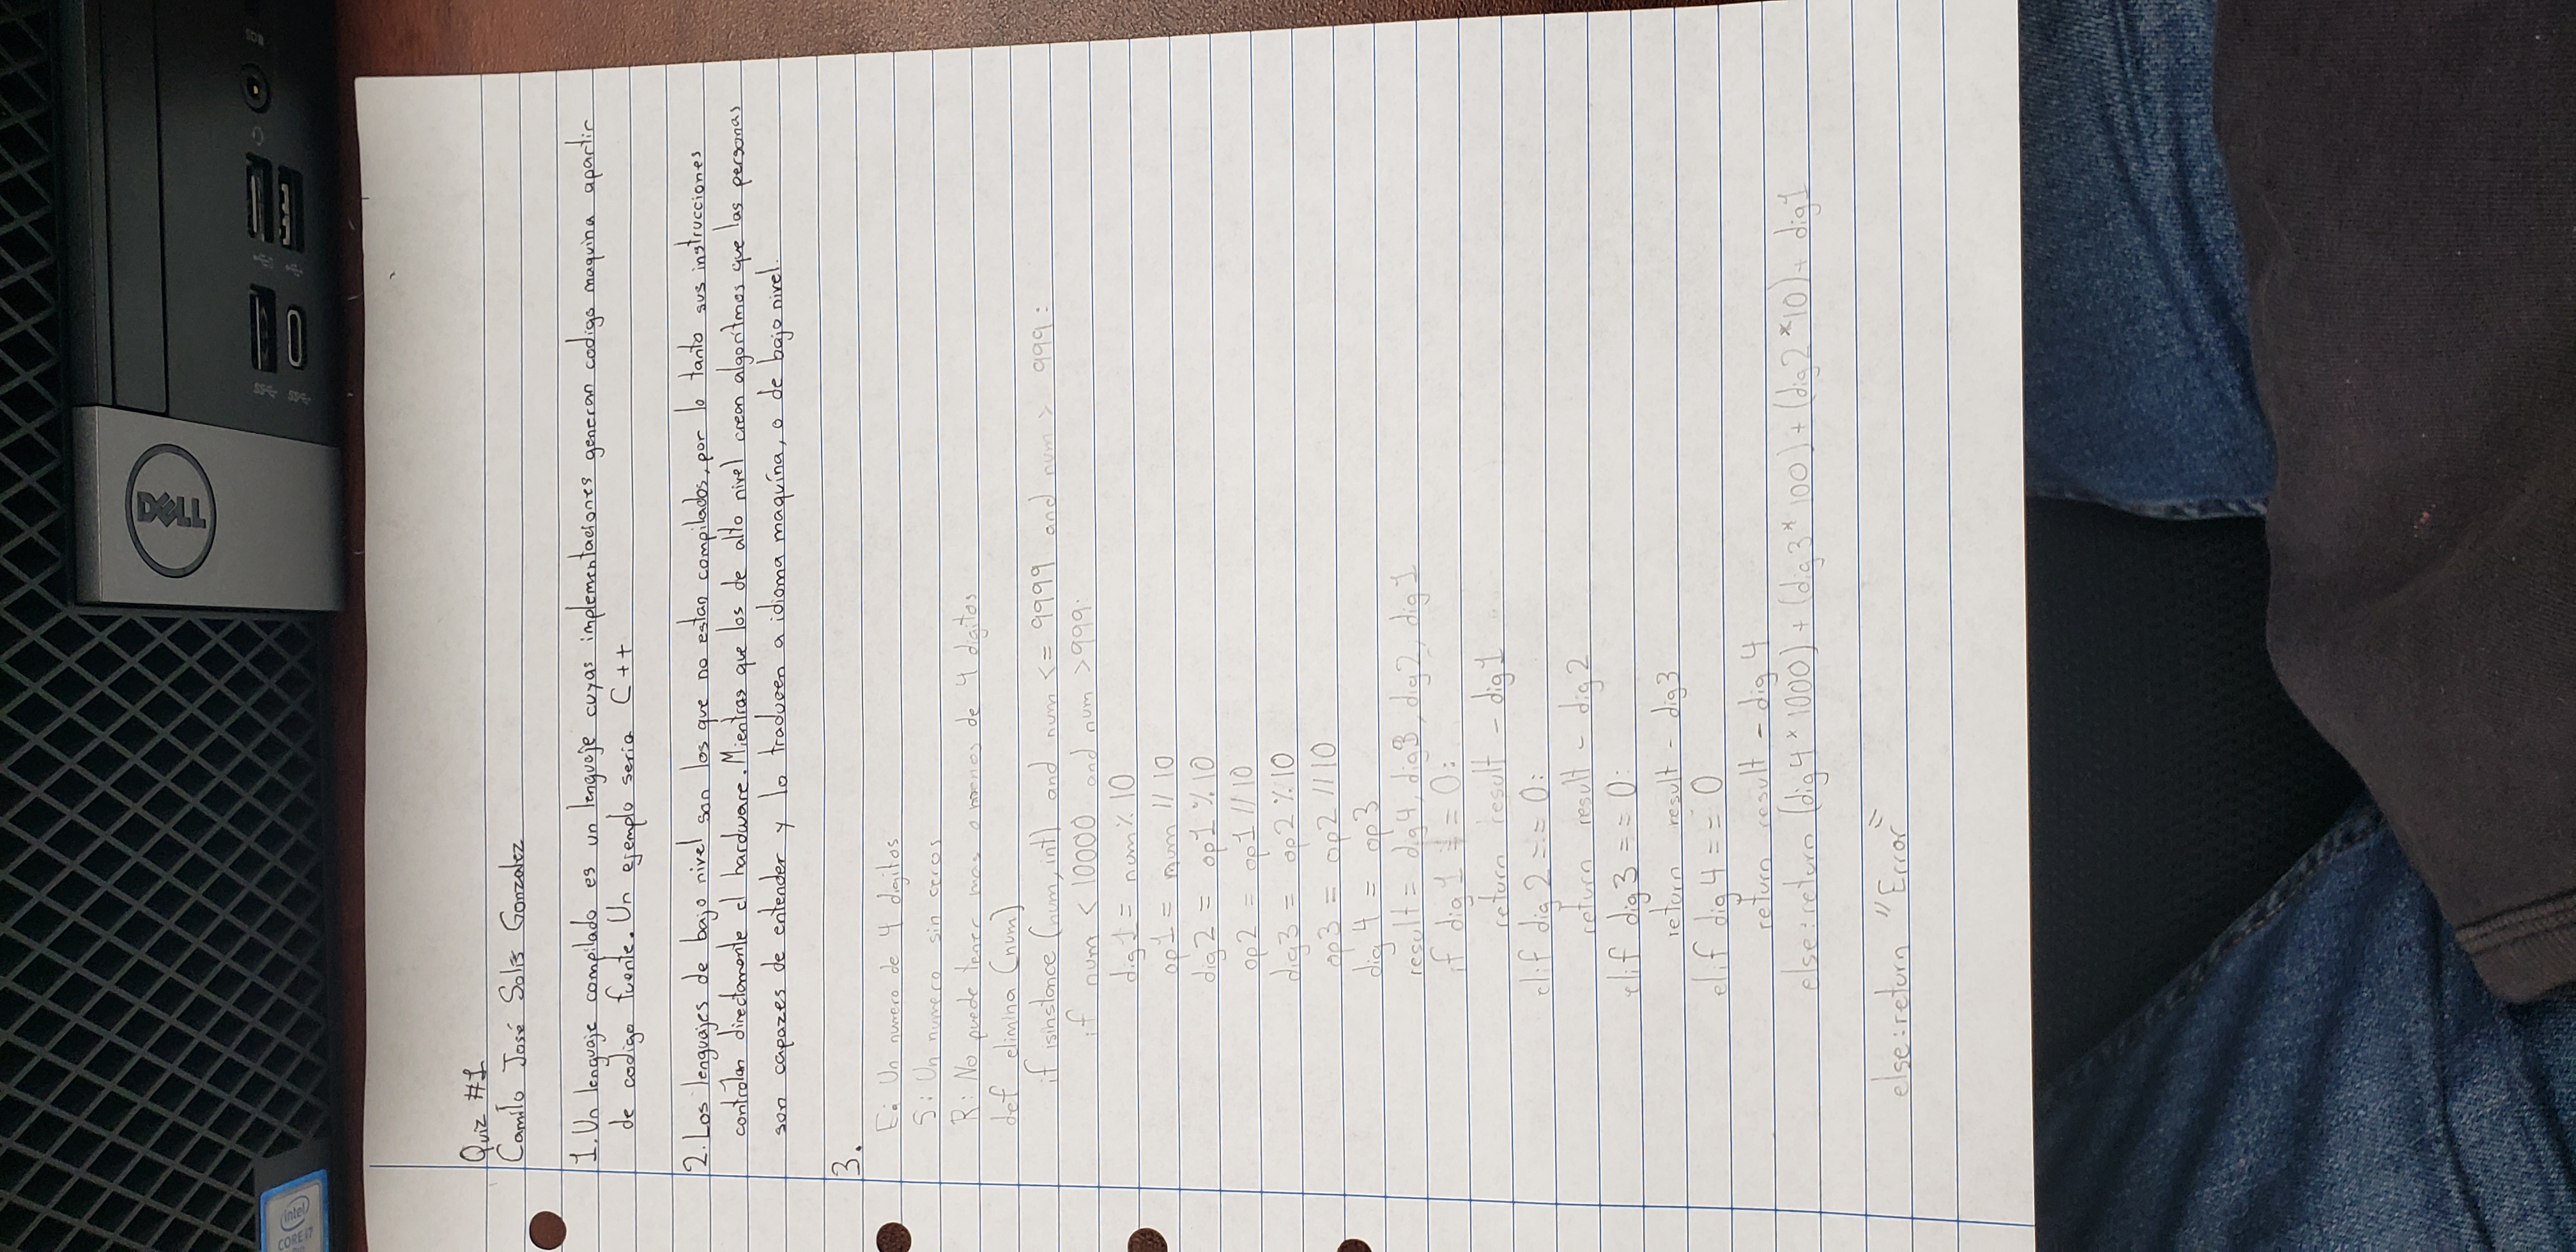 DELL
intel
CORE i7
Quiz #1
Camilo José Solís Gonzalez
1. Un lenguaje compilado es un lenguaje cuyas implementaciones generan codigo maquina apartir
de codigo fuente. Un ejemplo seria C++
2. Los lenguajes de bajo nivel son los que no estan compilados, por lo tanto sus instrucciones
controlan directamente el hardware. Mientras que los de alto nivel crean algoritmos que las personas
son capazes de entender y lo traducen a idioma maquina, o de bajo nivel.
3.
E: Un numero de 4 digitos
S: Un numero sin ceros
R: No puede tener mas o menos de 4 digitos
def elimina (num)
if isinstance (num, int) and num <= 9999 and num > 999:
if num < 10000 and num >999:
dig1 = num % 10
op1 = num // 10
dig2 = op1 % 10
op2 = op1 // 10
dig3 = op2 % 10
op3 = op2 // 10
dig4 = op3
result = dig4, dig3, dig2, dig1
if dig1 == 0:
return result - dig1
elif dig2 == 0:
return result - dig2
elif dig3 == 0:
return result - dig3
elif dig4 == 0
return result - dig4
else: return (dig4 * 1000) + (dig3 * 100) + (dig2 * 10) + dig1
else: return "Error"